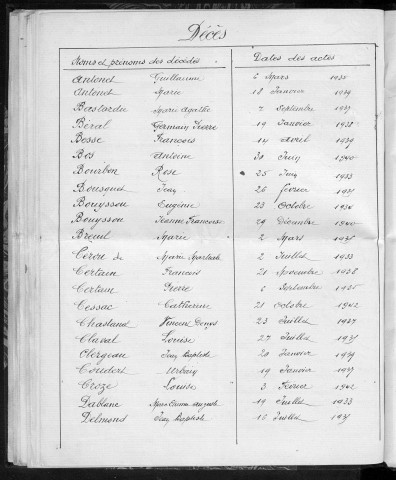 Décès
Noms et prénoms des décédés Dates des actes
Antonet Guillaume 6 Mars
Antonet Marie 18 Janvier 1939
Bastardu Marie Agathe 7 Septembre 1937
Béral Germain Pierre 19 Janvier 1938
Bosse Francois 14 Avril 1939
Bos Antoine 30 Juin 1940
Bourbon Rose 25 Juin 1933
Bousquet Jean 26 février 1937
Bouysson Eugénie 23 Octobre
Bouysson Jeanne Francoise 29 Décembre 1940
Breuil Marie 2 Mars 1935
Cérou de Marie 2 Juillet 1933
Certain Francois 21 Novembre 1938
Certain Pierre 6 Septembre 1935
Cessac Catherine 21 Octobre 1942
Chastand Vincent Denys 23 Juillet 1937
Claval Louise 27 Juillet 1937
Clergeau Jean Baptiste 20 Janvier 1939
Coudert Urbain 19 Janvier 1937
Croze Louise 3 Février 1942
Dablanc Auguste 19 Juillet 1933
Delmond Jean Baptiste 16 Juillet 1937